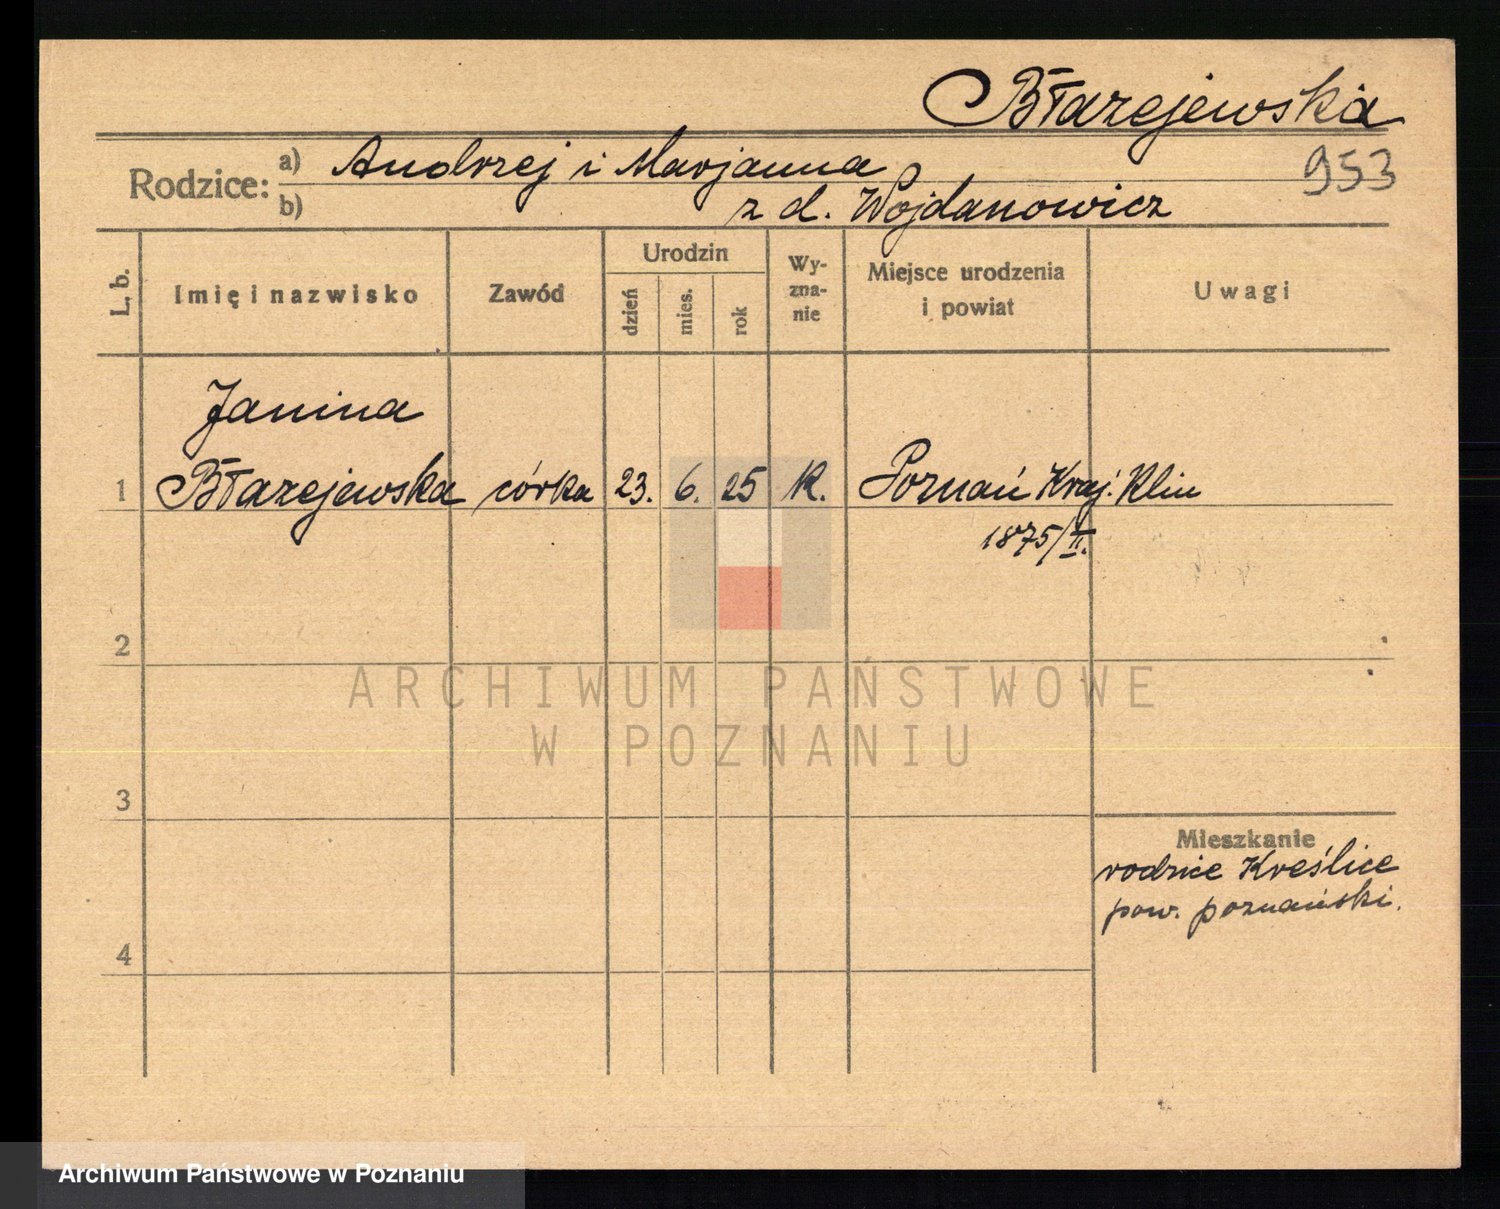 Błażejewska
Rodzice: a) Andrzej i Marjanna
953
b) z d. Wojdanowicz
L. b.
Imię i nazwisko
Zawód
Urodzin
dzień
mies.
rok
Wy-
zna-
nie
Miejsce urodzenia
i powiat
Uwagi
Janina
1 Błażejewska córka 23. 6. 25 K. Poznań Kraj. Klin
1875/II.
2
ARCHIWUM PAŃSTWOWE
W POZNANIU
3
Mieszkanie
rodzice Kreślice
pow. poznański.
4
Archiwum Państwowe w Poznaniu